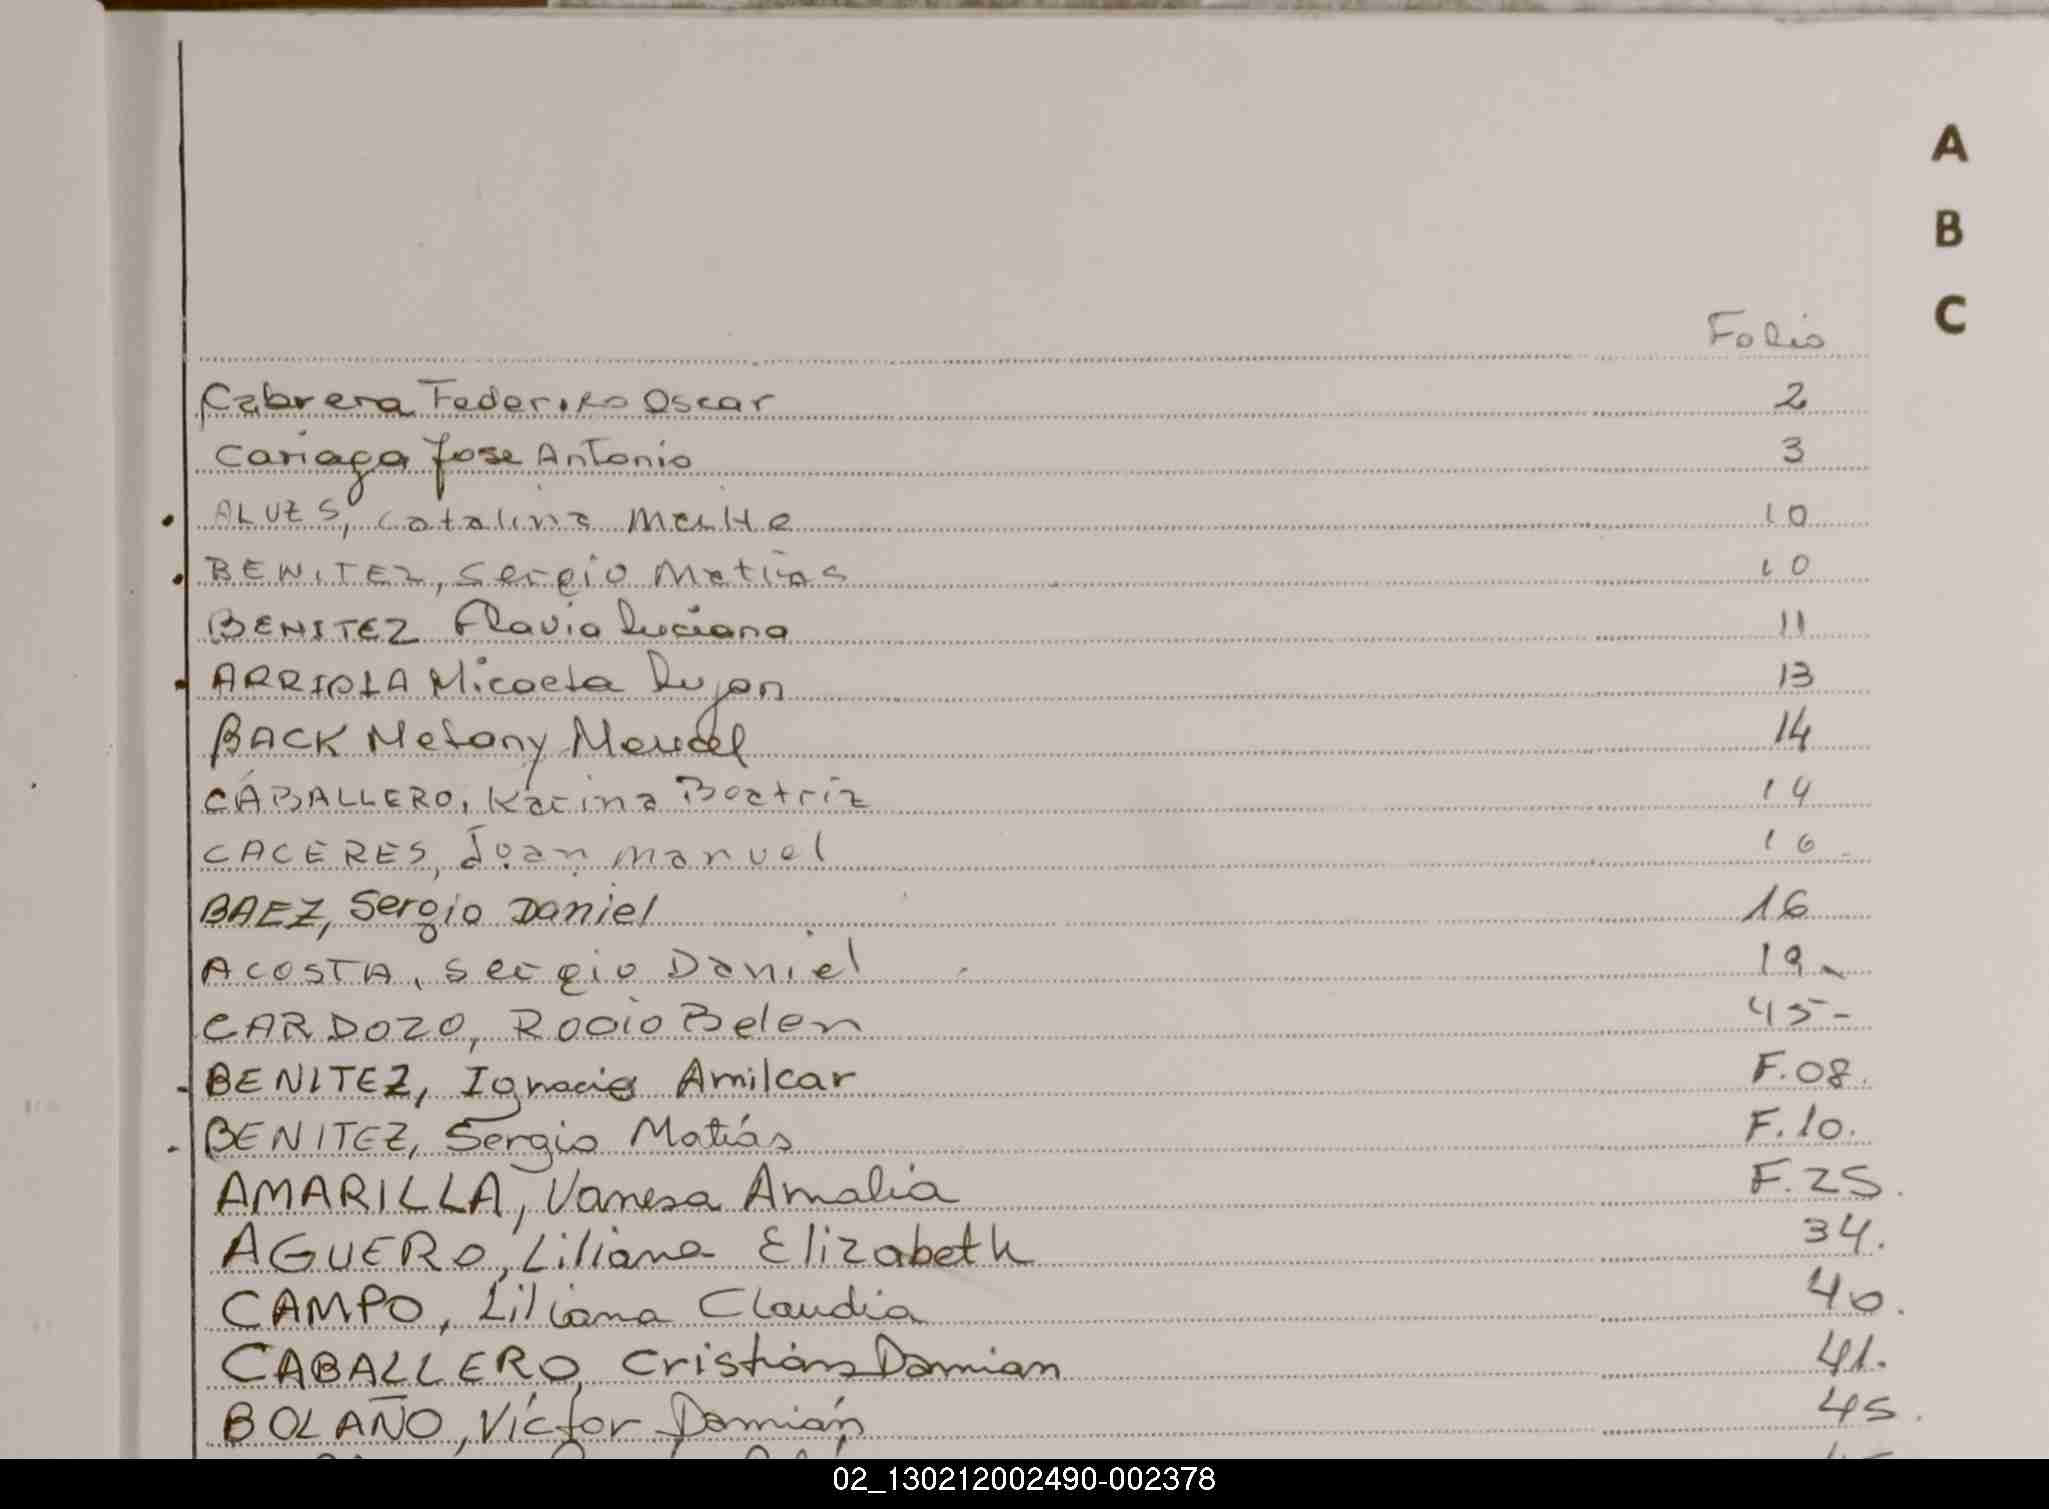 A
B
C
Folio
Cabrera Federico Oscar 2
Cariaga Jose Antonio 3
ALVES, Catalina Maite 10
BENITEZ, Sergio Matias 10
BENITEZ Flavia Luciana 11
ARRIOLA Micaela Lujan 13
BACK Melany 14
CABALLERO, Karina Beatriz 14
CACERES, Joan manuel 16
BAEZ, Sergio Daniel 16
ACOSTA, Sergio Daniel 19
CARDOZO, Rocio Belen 45-
BENITEZ, Ignacio Amilcar F.08.
BENITEZ, Sergio Matías F.10.
AMARILLA, Vanesa Amalia F.25.
AGUERO, Liliana Elizabeth 34.
CAMPO, Liliana Claudia 40.
CABALLERO, Cristian Damian 41.
BOLAÑO, Víctor Damián 45.
02_130212002490-002378